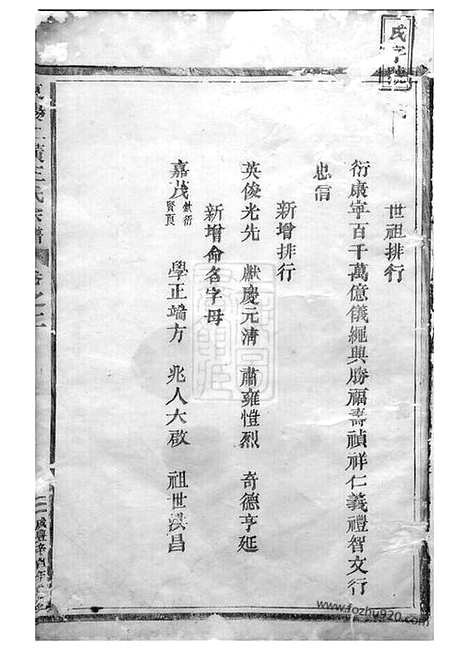 世祖排行
衍康寧百千萬億儀繩興勝福壽禎祥仁義禮智文行
忠信
新增排行
英俊光先 獻慶元清 肅雍愷烈 奇德亨延
新增命名字母
嘉茂 欽衍賢良 學正端方 兆人大啟 祖世洪昌
王氏宗譜
www.fozhu920.com